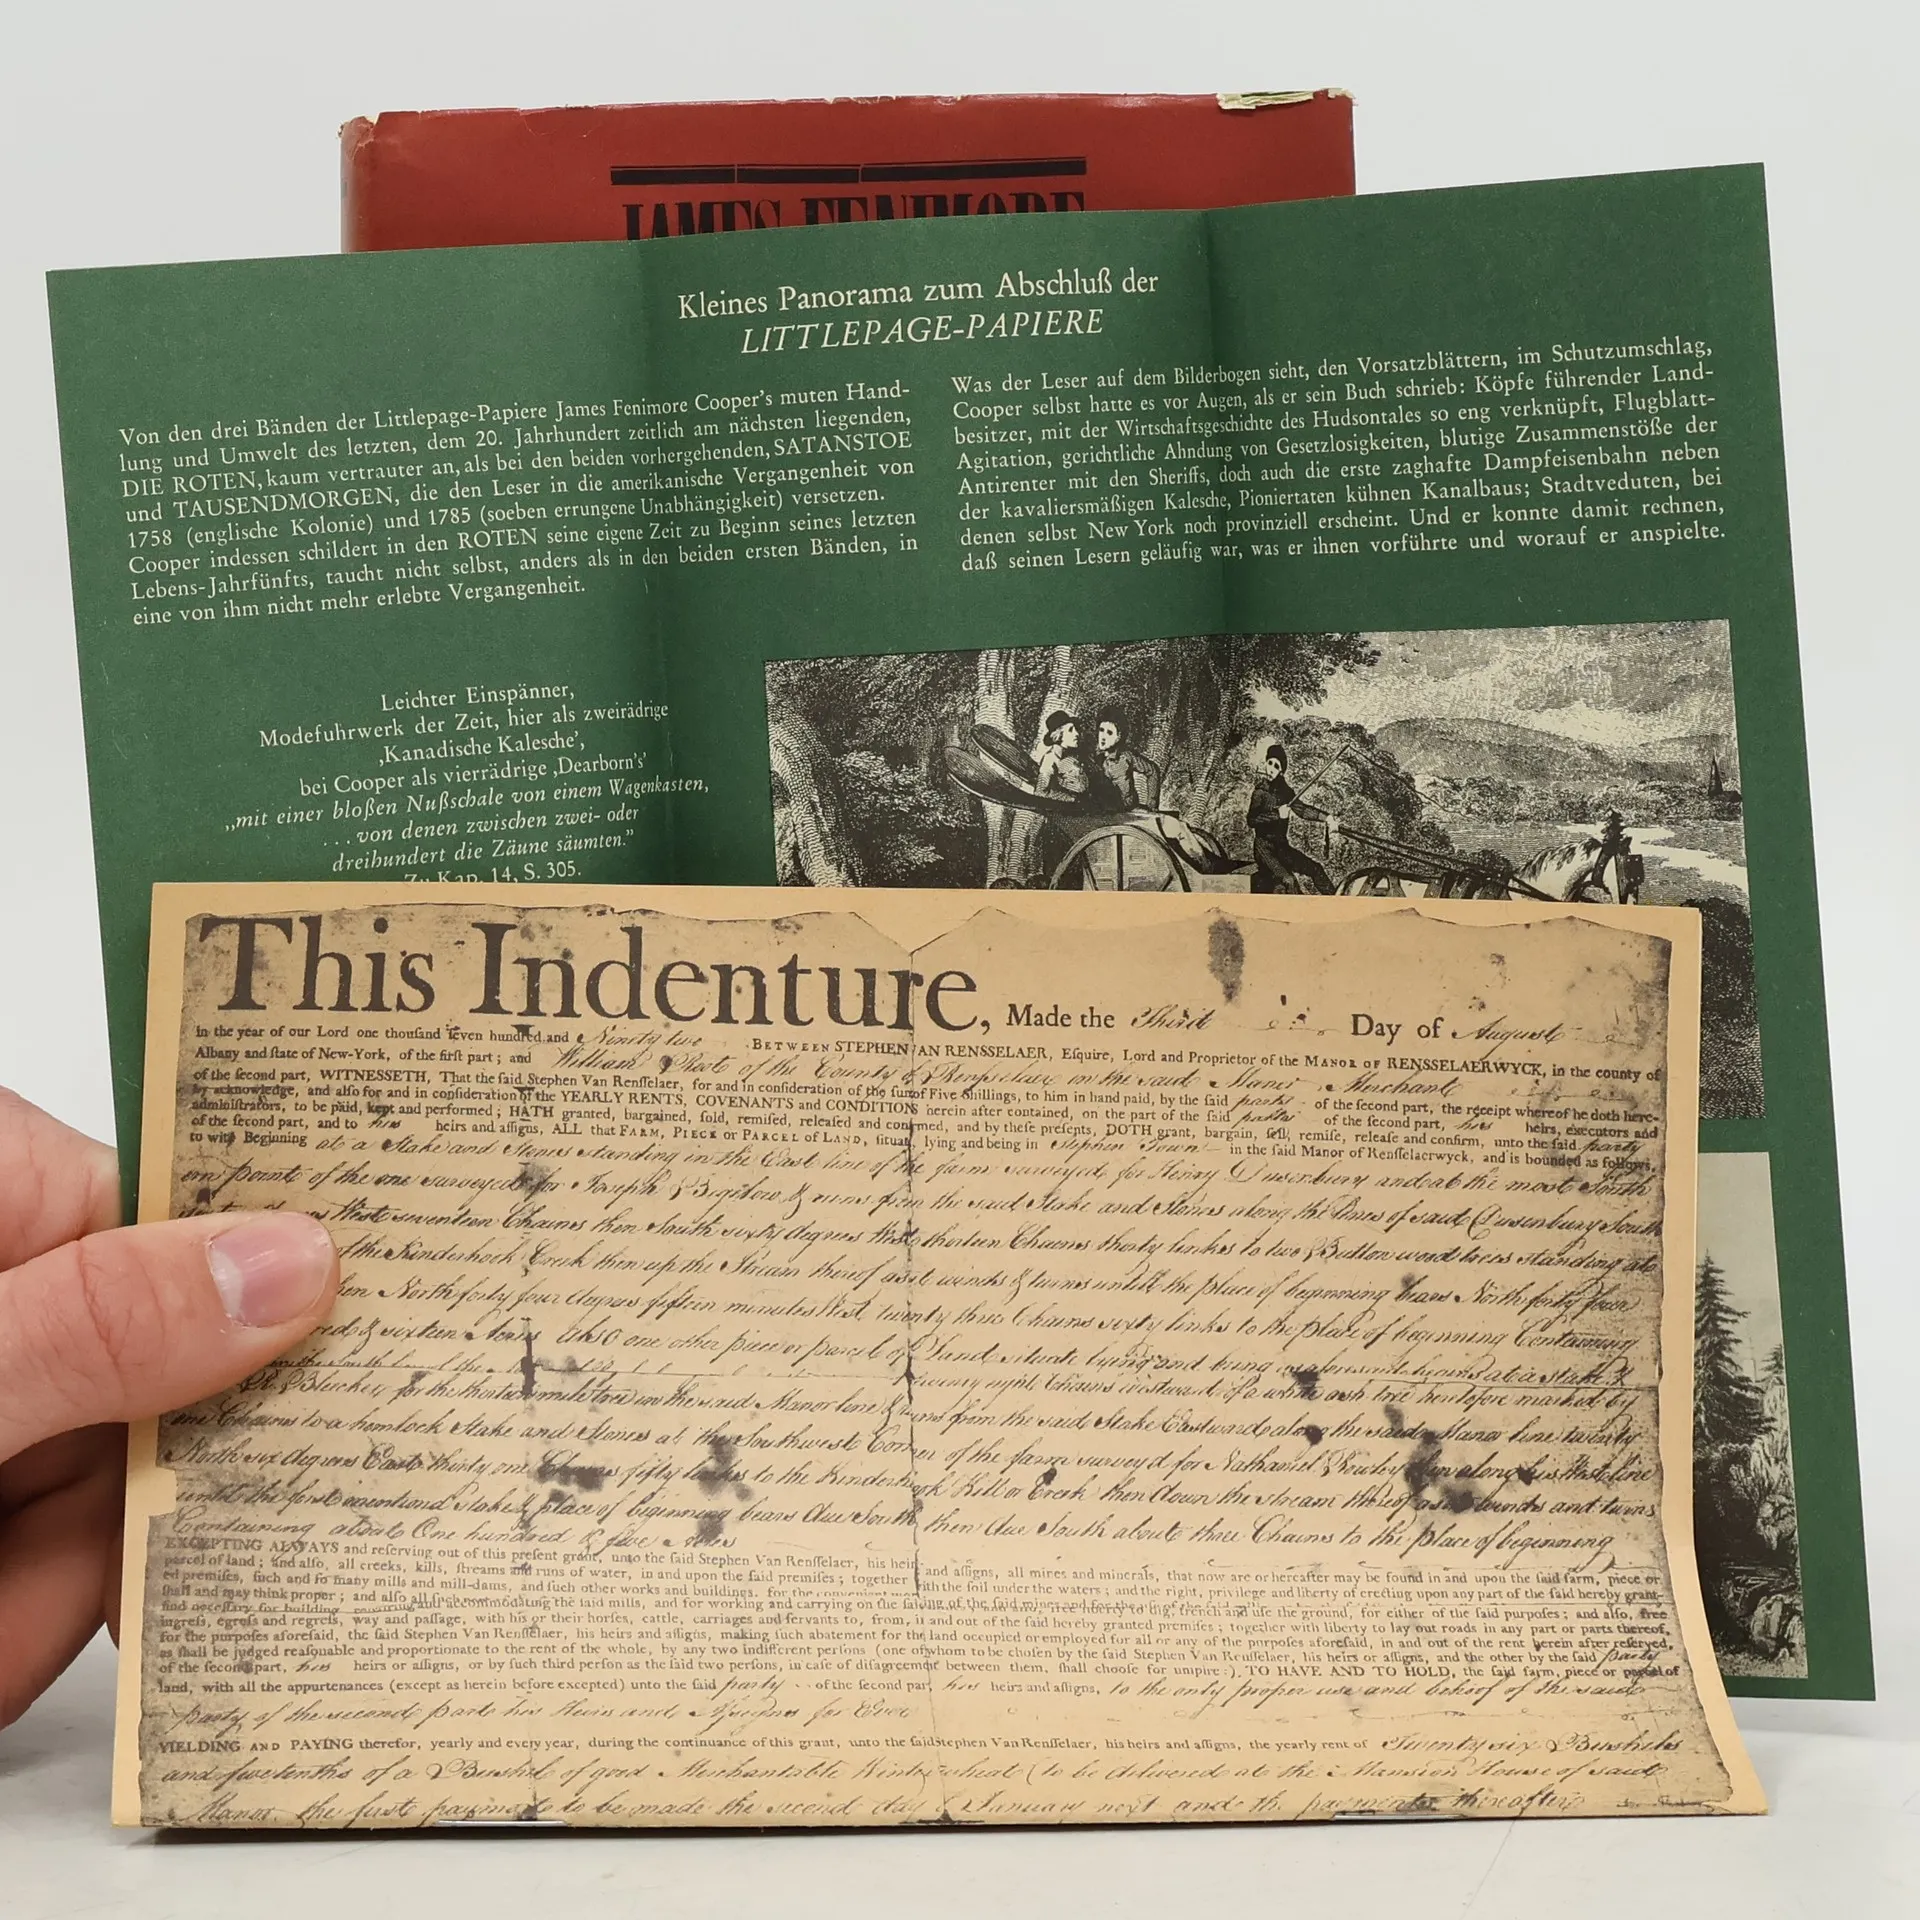 JAMES FENIMORE
Kleines Panorama zum Abschluß der
LITTLEPAGE-PAPIERE
Von den drei Bänden der Littlepage-Papiere James Fenimore Cooper's muten Hand-
lung und Umwelt des letzten, dem 20. Jahrhundert zeitlich am nächsten liegenden,
DIE ROTEN, kaum vertrauter an, als bei den beiden vorhergehenden, SATANSTOE
und TAUSENDMORGEN, die den Leser in die amerikanische Vergangenheit von
1758 (englische Kolonie) und 1785 (soeben errungene Unabhängigkeit) versetzen.
Cooper indessen schildert in den ROTEN seine eigene Zeit zu Beginn seines letzten
Lebens-Jahrfünfts, taucht nicht selbst, anders als in den beiden ersten Bänden, in
eine von ihm nicht mehr erlebte Vergangenheit.
Was der Leser auf dem Bilderbogen sieht, den Vorsatzblättern, im Schutzumschlag,
Cooper selbst hatte es vor Augen, als er sein Buch schrieb: Köpfe führender Land-
besitzer, mit der Wirtschaftsgeschichte des Hudsontales so eng verknüpft, Flugblatt-
Agitation, gerichtliche Ahndung von Gesetzlosigkeiten, blutige Zusammenstöße der
Antirenter mit den Sheriffs, doch auch die erste zaghafte Dampfeisenbahn neben
der kavaliersmäßigen Kalesche, Pioniertaten kühnen Kanalbaus; Stadtveduten, bei
denen selbst New York noch provinziell erscheint. Und er konnte damit rechnen,
daß seinen Lesern geläufig war, was er ihnen vorführte und worauf er anspielte.
Leichter Einspänner,
Modefuhrwerk der Zeit, hier als zweirädrige
‚Kanadische Kalesche',
bei Cooper als vierrädrige ‚Dearborn's'
„mit einer bloßen Nußschale von einem Wagenkasten,
. . . von denen zwischen zwei- oder
dreihundert die Zäune säumten.”
Zu Kap. 14, S. 305.
This Indenture, Made the Third Day of August
in the year of our Lord one thouſand ſeven hundred and Ninety two BETWEEN STEPHEN VAN RENSSELAER, Eſquire, Lord and Proprietor of the MANOR OF RENSSELAERWYCK, in the county of
Albany and ſtate of New-York, of the firſt part; and William Root of the County of Rensselaer in the said Manor Merchant
of the ſecond part, WITNESSETH, That the ſaid Stephen Van Renſſelaer, for and in conſideration of the ſum of Five Shillings, to him in hand paid, by the ſaid party of the ſecond part, the receipt whereof he doth here-
by acknowledge, and alſo for and in conſideration of the YEARLY RENTS, COVENANTS and CONDITIONS herein after contained, on the part of the ſaid party of the ſecond part, his heirs, executors and
adminiſtrators, to be paid, kept and performed; HATH granted, bargained, ſold, remiſed, releaſed and confirmed, and by theſe preſents, DOTH grant, bargain, ſell, remiſe, releaſe and confirm, unto the ſaid party
of the ſecond part, and to his heirs and aſſigns, ALL that FARM, PIECE or PARCEL of LAND, ſituate, lying and being in Stephen Town in the ſaid Manor of Renſſelaerwyck, and is bounded as follows,
to wit, Beginning at a Stake and Stones standing in the East line of the farm surveyed for Henry Dusenbury and at the most South
ern point of the one surveyed for Joseph Bigelow & runs from the said Stake and Stones along the lines of said Dusenbury South
West seventeen Chains then South sixty degrees West thirteen Chains thirty links to two Button wood trees standing at
of the Kinderhook Creek then up the Stream thereof as it winds & turns untill the place of beginning bears North forty four
then North forty four degrees fifteen minutes West twenty three Chains sixty links to the place of beginning Containing
& sixteen Acres also one other piece or parcel of Land situate lying and being as aforesaid begins at a stake
twenty eight Chains westward of a white ash tree heretofore marked by
R. Bleecker for the thirteen mile tree in the said Manor line & runs from the said Stake Eastward along the said Manor line twenty
one Chains to a hemlock Stake and Stones at the Southwest Corner of the farm survey'd for Nathaniel Rowley then along his West line
North six degrees East thirty one Chains fifty links to the Kinderhook Kill or Creek then down the stream thereof as it winds and turns
until the first mentioned Stake & place of beginning bears due South then due South about three Chains to the place of beginning
Containing about One hundred & five Acres
EXCEPTING ALWAYS and reſerving out of this preſent grant, unto the ſaid Stephen Van Renſſelaer, his heirs and aſſigns, all mines and minerals, that now are or hereafter may be found in and upon the ſaid farm, piece or
parcel of land; and alſo, all creeks, kills, ſtreams and runs of water, in and upon the ſaid premiſes; together with the ſoil under the waters; and the right, privilege and liberty of erecting upon any part of the ſaid hereby grant-
ed premiſes, ſuch and ſo many mills and mill-dams, and ſuch other works and buildings, for the convenient
ſhall and may think proper; and alſo all
find neceſſary for building
ingreſs, egreſs and regreſs, way and paſſage, with his or their horſes, cattle, carriages and ſervants to, from, in and out of the ſaid hereby granted premiſes; together with liberty to lay out roads in any part or parts thereof,
for the purpoſes aforeſaid, the ſaid Stephen Van Renſſelaer, his heirs and aſſigns, making ſuch abatement for the land occupied or employed for all or any of the purpoſes aforeſaid, in and out of the rent herein after reſerved,
as ſhall be judged reaſonable and proportionate to the rent of the whole, by any two indifferent perſons (one of whom to be choſen by the ſaid Stephen Van Renſſelaer, his heirs or aſſigns, and the other by the ſaid party
of the ſecond part, his heirs or aſſigns, or by ſuch third perſon as the ſaid two perſons, in caſe of diſagreement between them, ſhall chooſe for umpire:). TO HAVE AND TO HOLD, the ſaid farm, piece or parcel of
land, with all the appurtenances (except as herein before excepted) unto the ſaid party of the ſecond part, his heirs and aſſigns, to the only proper use and behoof of the said
party of the second part his Heirs and Assigns for Ever
YIELDING AND PAYING therefor, yearly and every year, during the continuance of this grant, unto the ſaid Stephen Van Renſſelaer, his heirs and aſſigns, the yearly rent of Twenty six Bushels
and five tenths of a Bushel of good Merchantable Winter wheat (to be delivered at the Mansion House of said
Manor, the first payment to be made the second day of January next and the payments thereafter